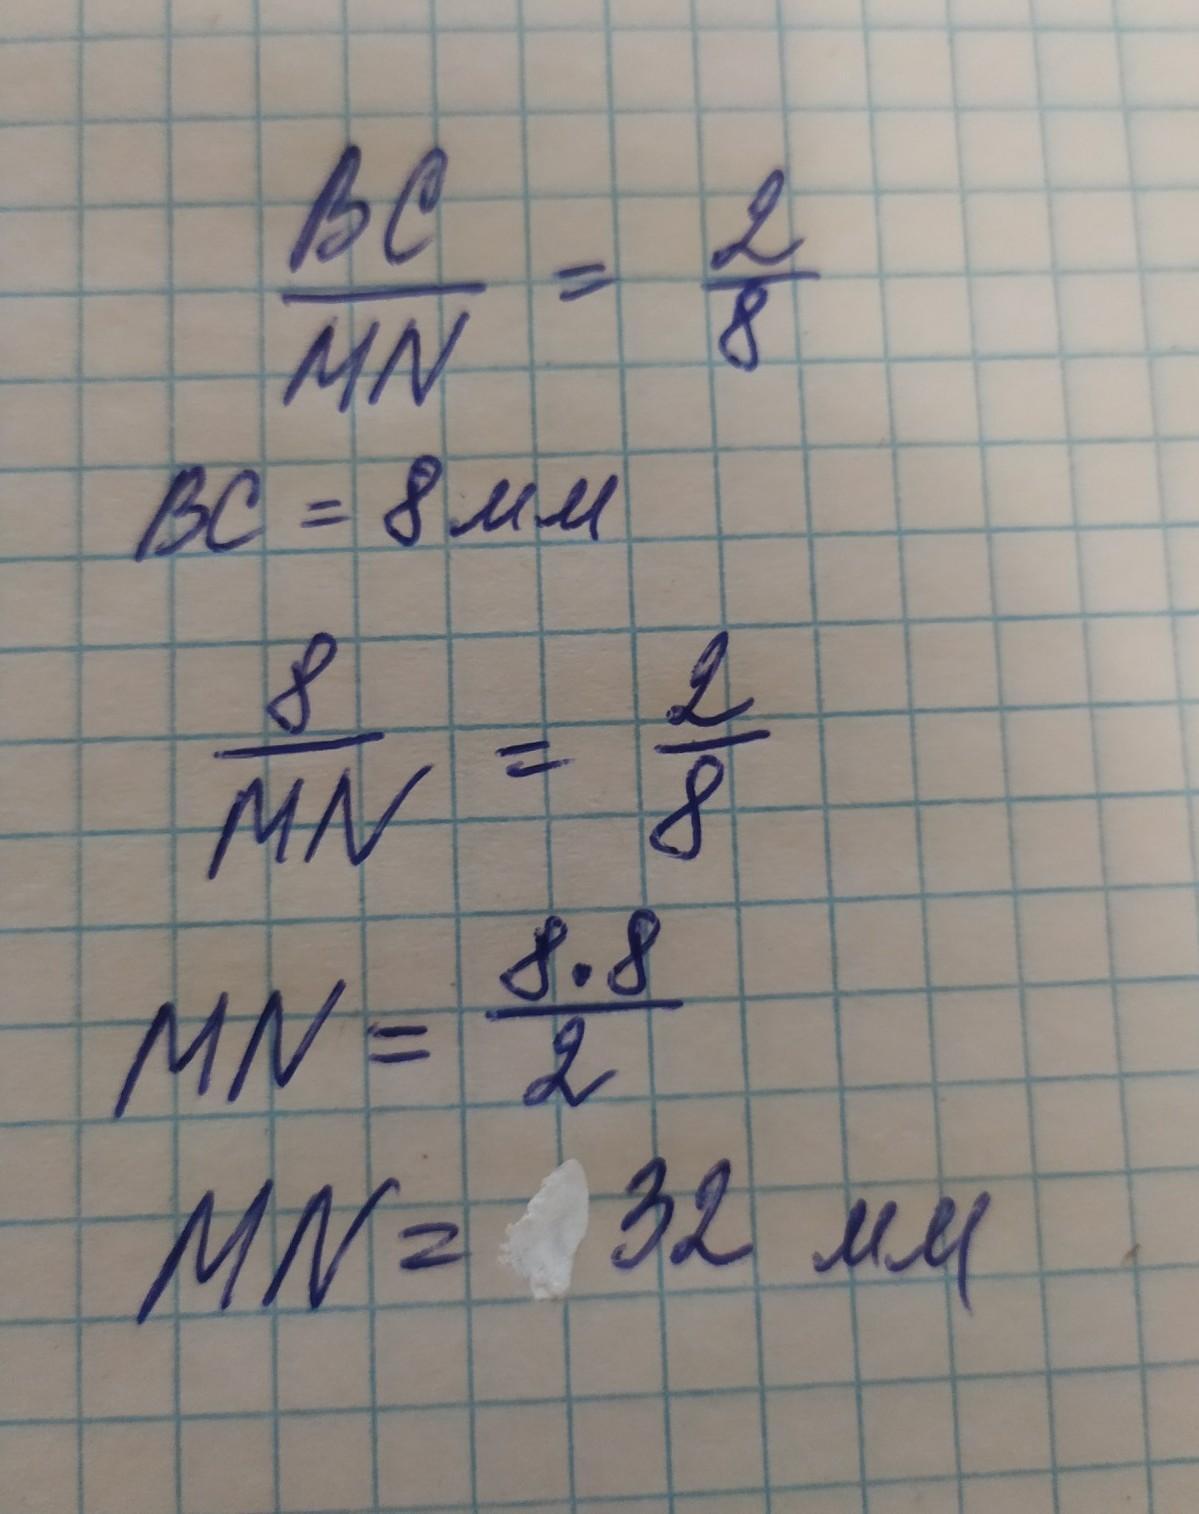 BC/MN = 2/8
BC = 8 мм
8/MN = 2/8
MN = 8·8/2
MN = 32 мм